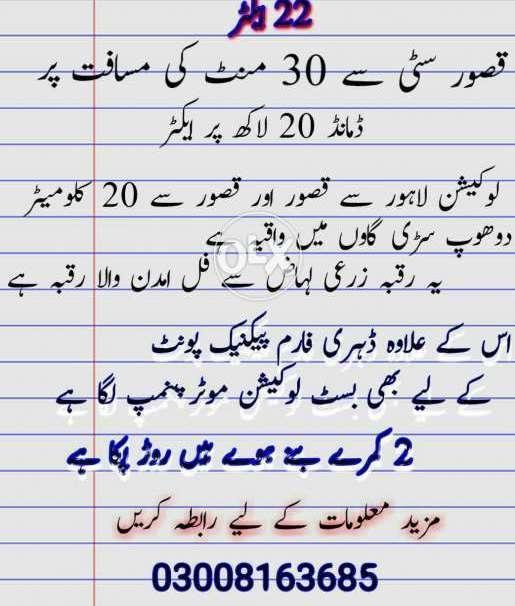 22 ایکٹر
قصور سٹی سے 30 منٹ کی مسافت پر
ڈمانڈ 20 لاکھ پر ایکٹر
لوکیشن لاہور سے قصور اور قصور سے 20 کلومیٹر
دوھوپ سڑی گاوں میں واقیہ ہے
OLX
یہ رقبہ زرعی لہاض سے فل امدن والا رقبہ ہے
اس کے علاوہ ڈہری فارم پیکنیک پونٹ
کے لیے بھی بسٹ لوکیشن موٹر پنمپ لگا ہے
2 کمرے بنے ہوے ہیں روڑ پکا ہے
مزید معلومات کے لیے رابطہ کریں
03008163685